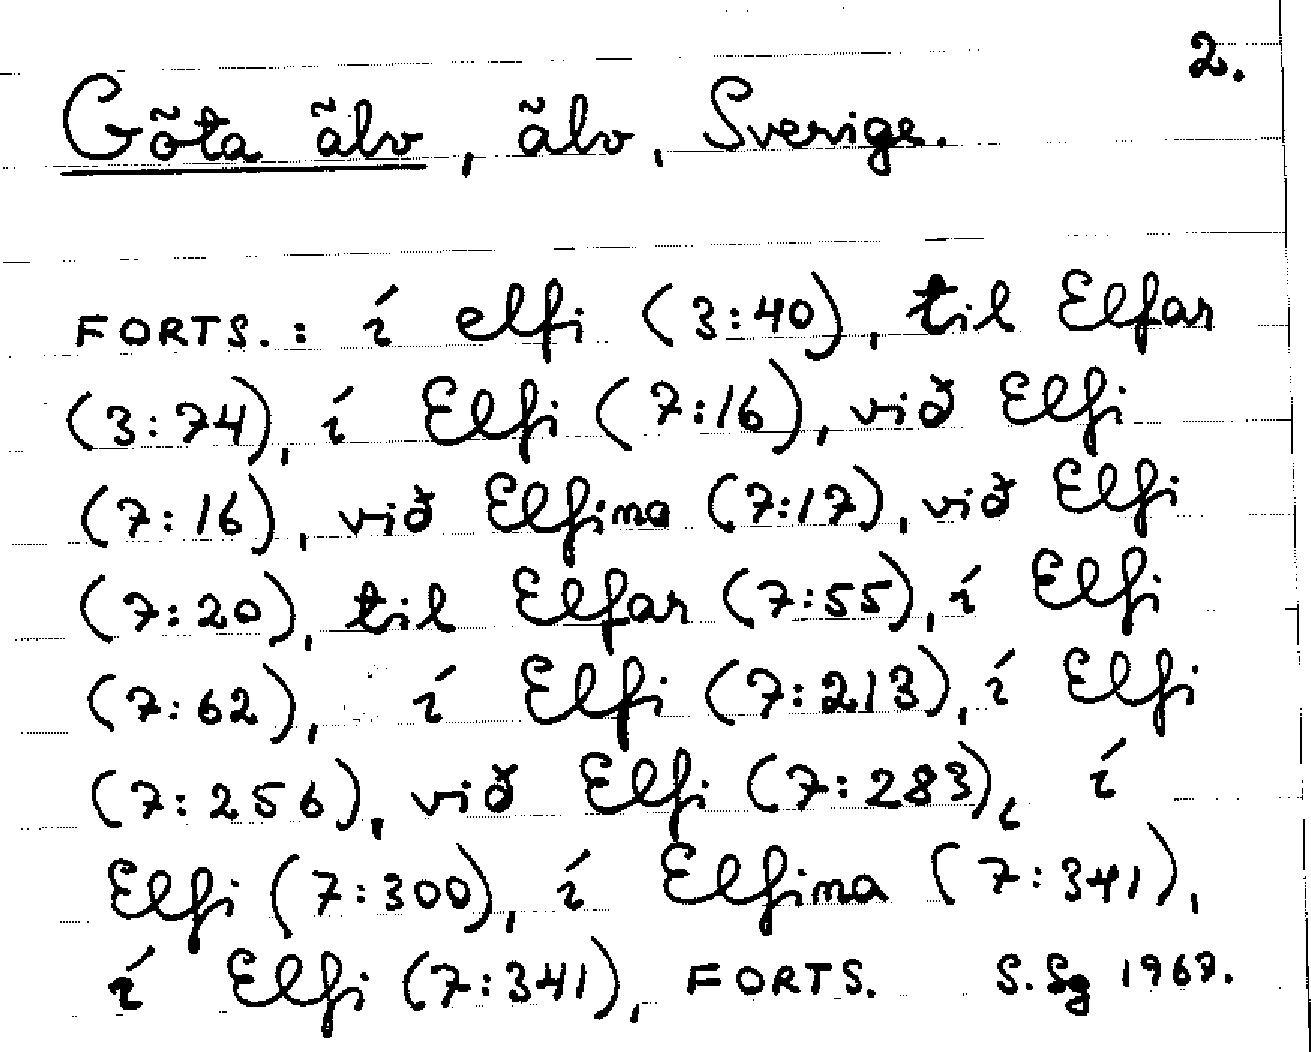 2.
Göta älv, älv, Sverige.
FORTS.: í elfi (3:40), til Elfar
(3:74), í Elfi (7:16), við Elfi
(7:16), við Elfina (7:17), við Elfi
(7:20), til Elfar (7:55), í Elfi
(7:62), í Elfi (7:213), í Elfi
(7:256), við Elfi (7:283), í
Elfi (7:300), í Elfina (7:341),
í Elfi (7:341), FORTS. S. Sg 1967.